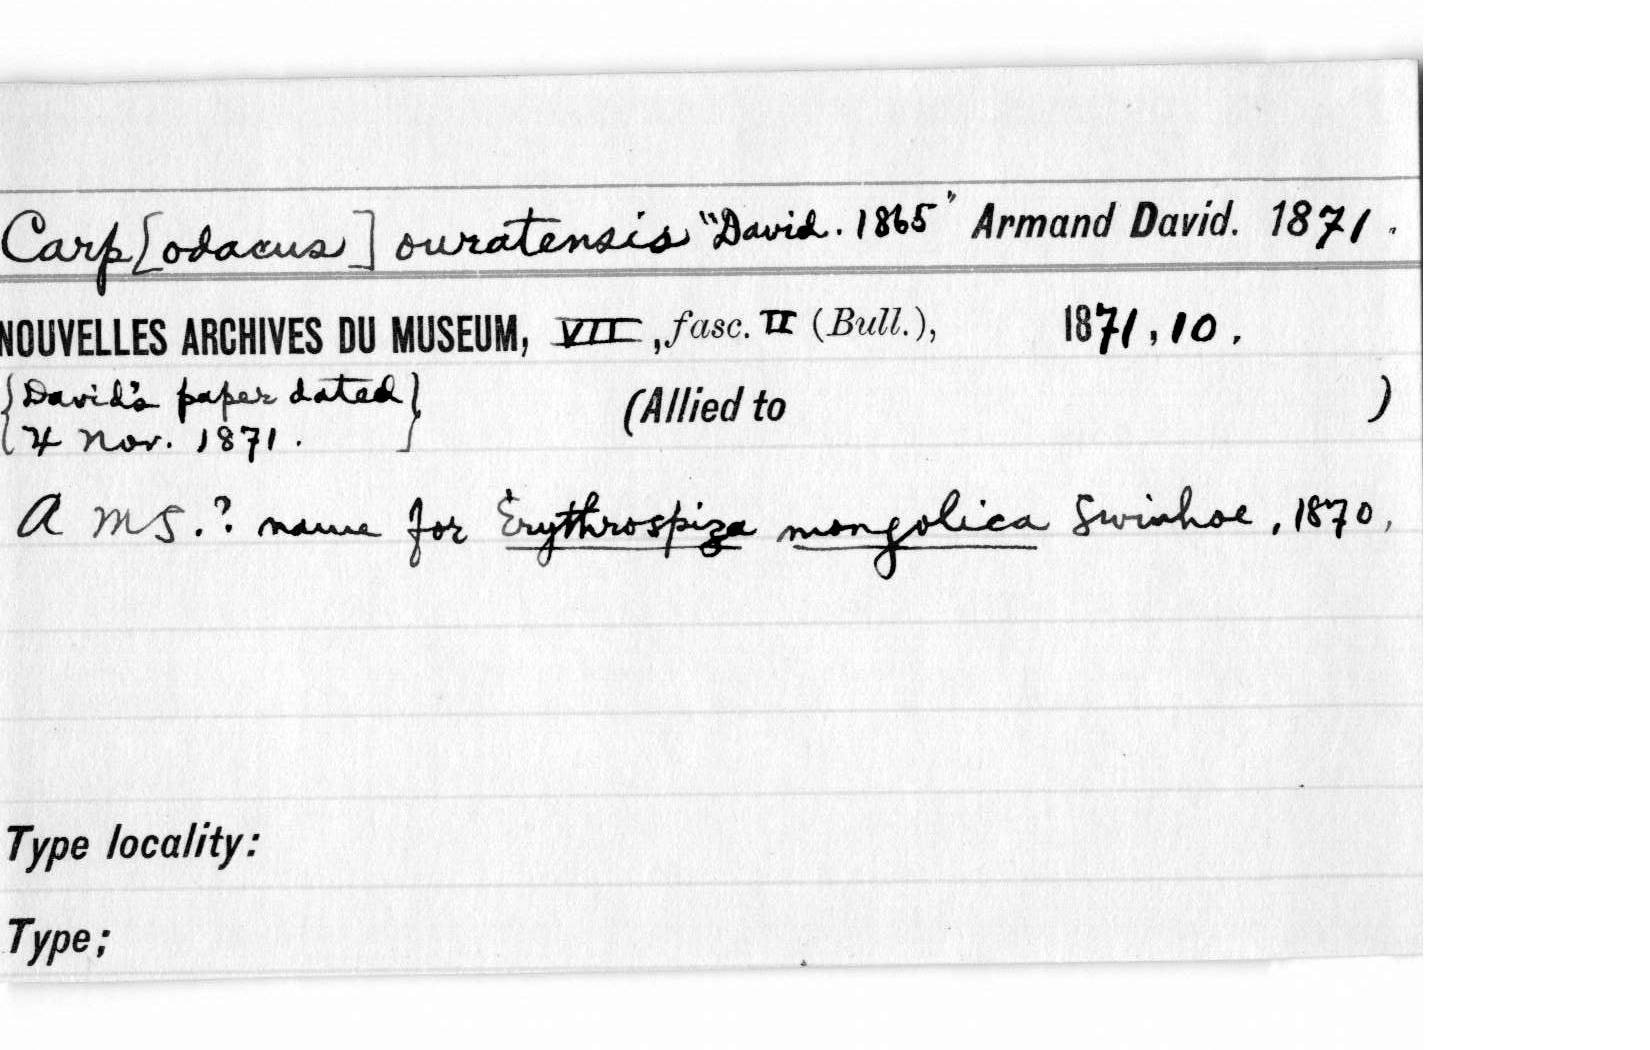 Carp[odacus] ouratensis "David. 1865" Armand David. 1871.
NOUVELLES ARCHIVES DU MUSEUM, VII, fasc. II (Bull.), 1871, 10.
{David's paper dated} (Allied to )
{4 Nov. 1871.}
A MS.? name for Erythrospiza mongolica Swinhoe, 1870,
Type locality:
Type;